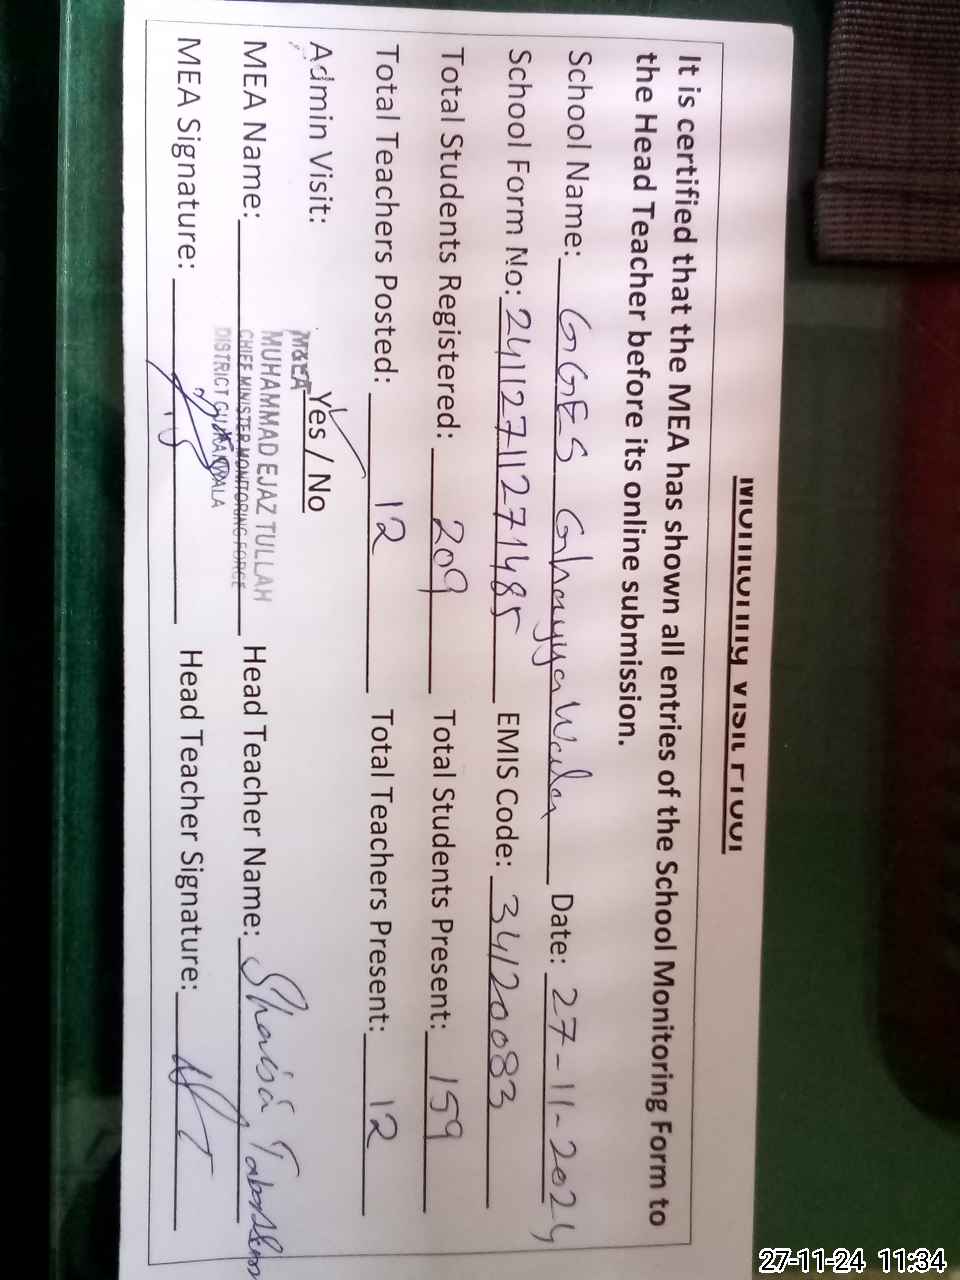 Monitoring Visit Proof
It is certified that the MEA has shown all entries of the School Monitoring Form to
the Head Teacher before its online submission.
School Name: GGES Date: 27-11-2024
School Form No: 24112711271485 EMIS Code: 34120083
Total Students Registered: 209 Total Students Present: 159
Total Teachers Posted: 12 Total Teachers Present: 12
Admin Visit: Yes / No
M&EA
MUHAMMAD EJAZ TULLAH
CHIEF MINISTER MONITORING FORCE
DISTRICT GUJRANWALA
MEA Name: Head Teacher Name: Shaisa Tabassem
MEA Signature: Head Teacher Signature:
27-11-24 11:34